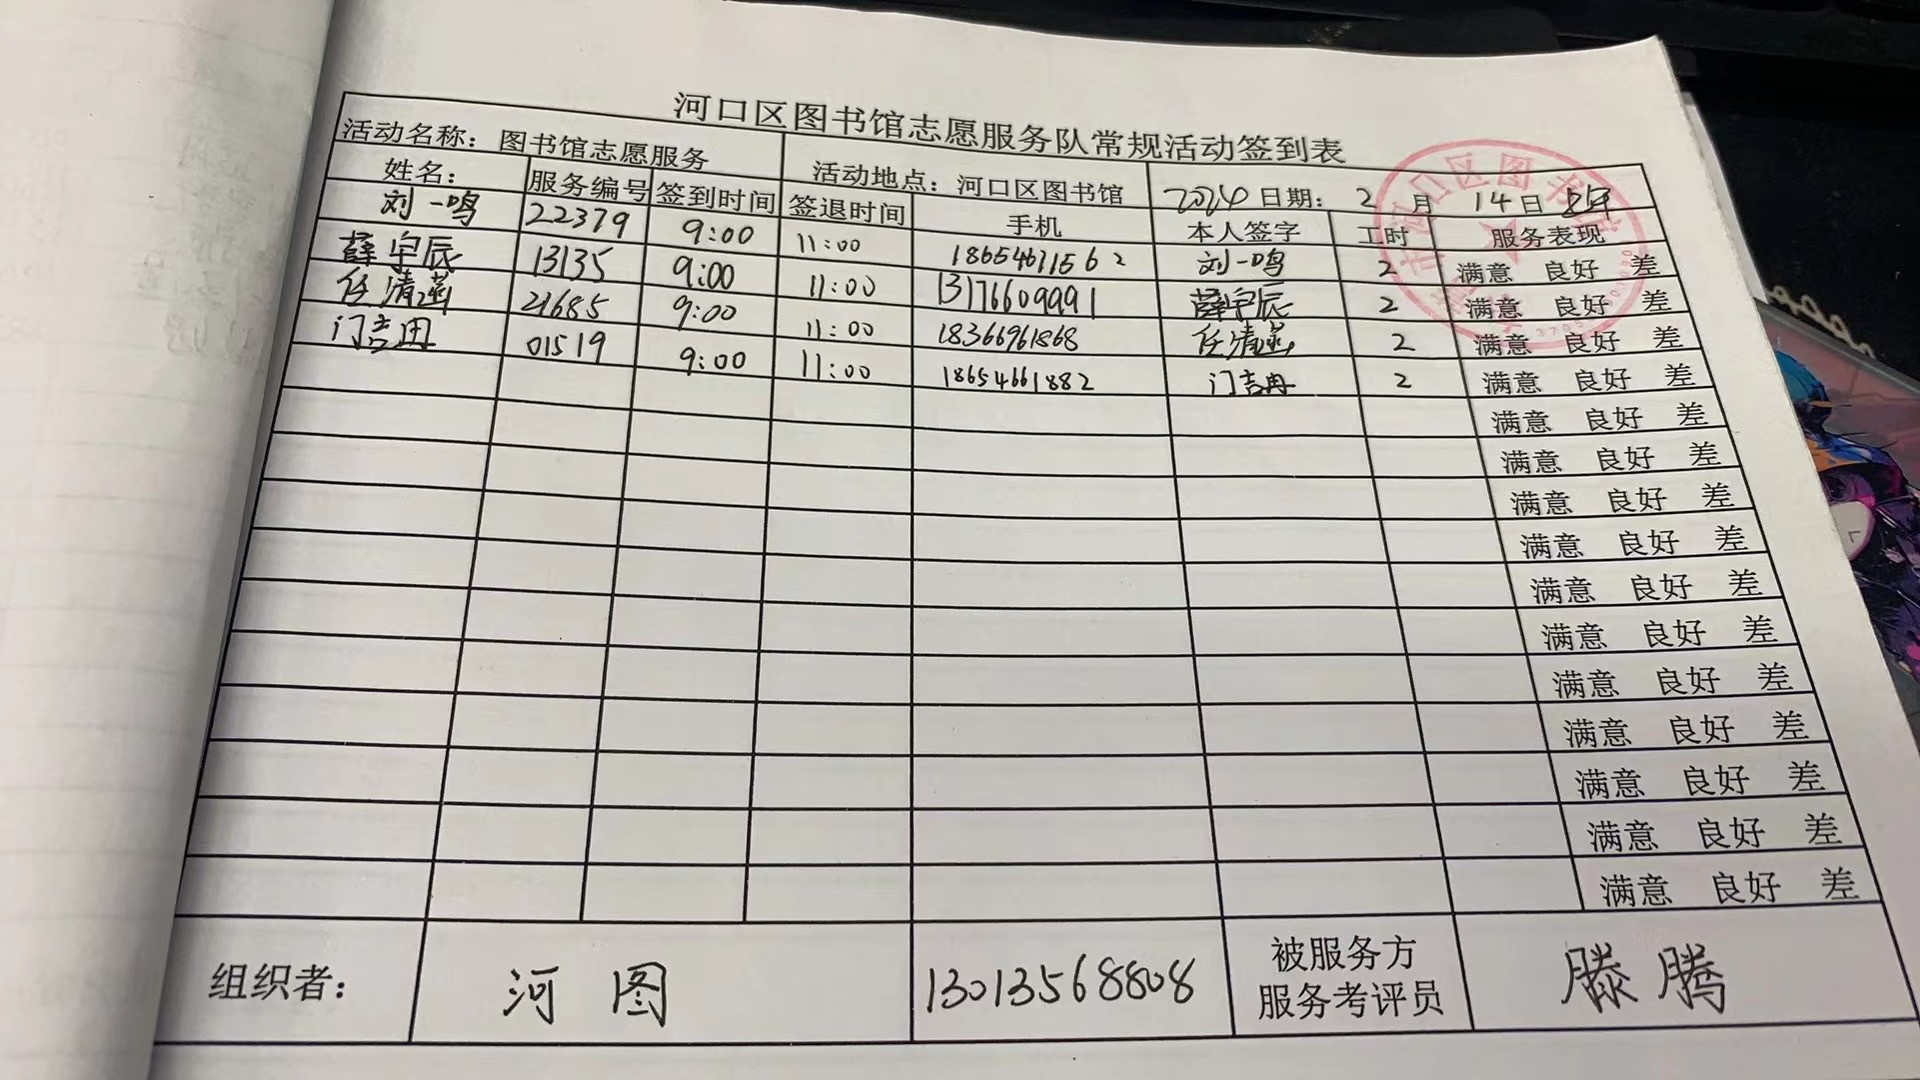 河口区图书馆志愿服务队常规活动签到表
活动名称：图书馆志愿服务 活动地点：河口区图书馆 2024日期：2月14日上午
姓名： 服务编号 签到时间 签退时间 手机 本人签字 工时 服务表现
刘一鸣 22379 9:00 11:00 18654671562 刘一鸣 2 满意 良好 差
薛宇辰 13135 9:00 11:00 13176609991 薛宇辰 2 满意 良好 差
任清菡 21685 9:00 11:00 18366961868 任清菡 2 满意 良好 差
门吉冉 01519 9:00 11:00 18654661882 门吉冉 2 满意 良好 差
满意 良好 差
满意 良好 差
满意 良好 差
满意 良好 差
满意 良好 差
满意 良好 差
满意 良好 差
满意 良好 差
满意 良好 差
满意 良好 差
满意 良好 差
组织者： 河图 13013568808 被服务方 滕腾
服务考评员